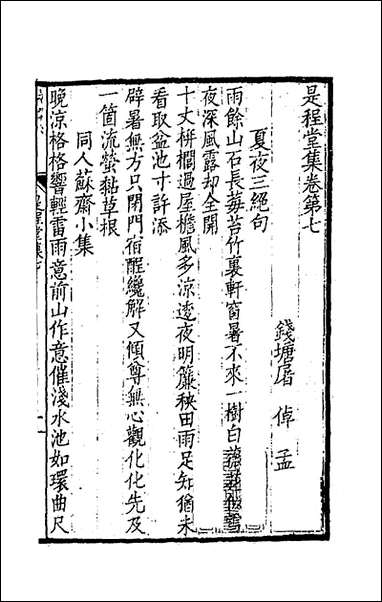 是程堂集卷第七
錢塘屠倬孟
夏夜三絕句
雨餘山石長莓苔竹裏軒窗暑不來一樹白
夜深風露却全開
十丈栟櫚過屋檐風多涼透夜明簾秧田雨足知猶未
看取盆池寸許添
辟暑無方只閉門宿酲纔解又傾尊無心觀化化先及
一箇流螢黏草根
同人蘇齋小集
晚涼格格響輕雷雨意前山作意催淺水池如環曲尺